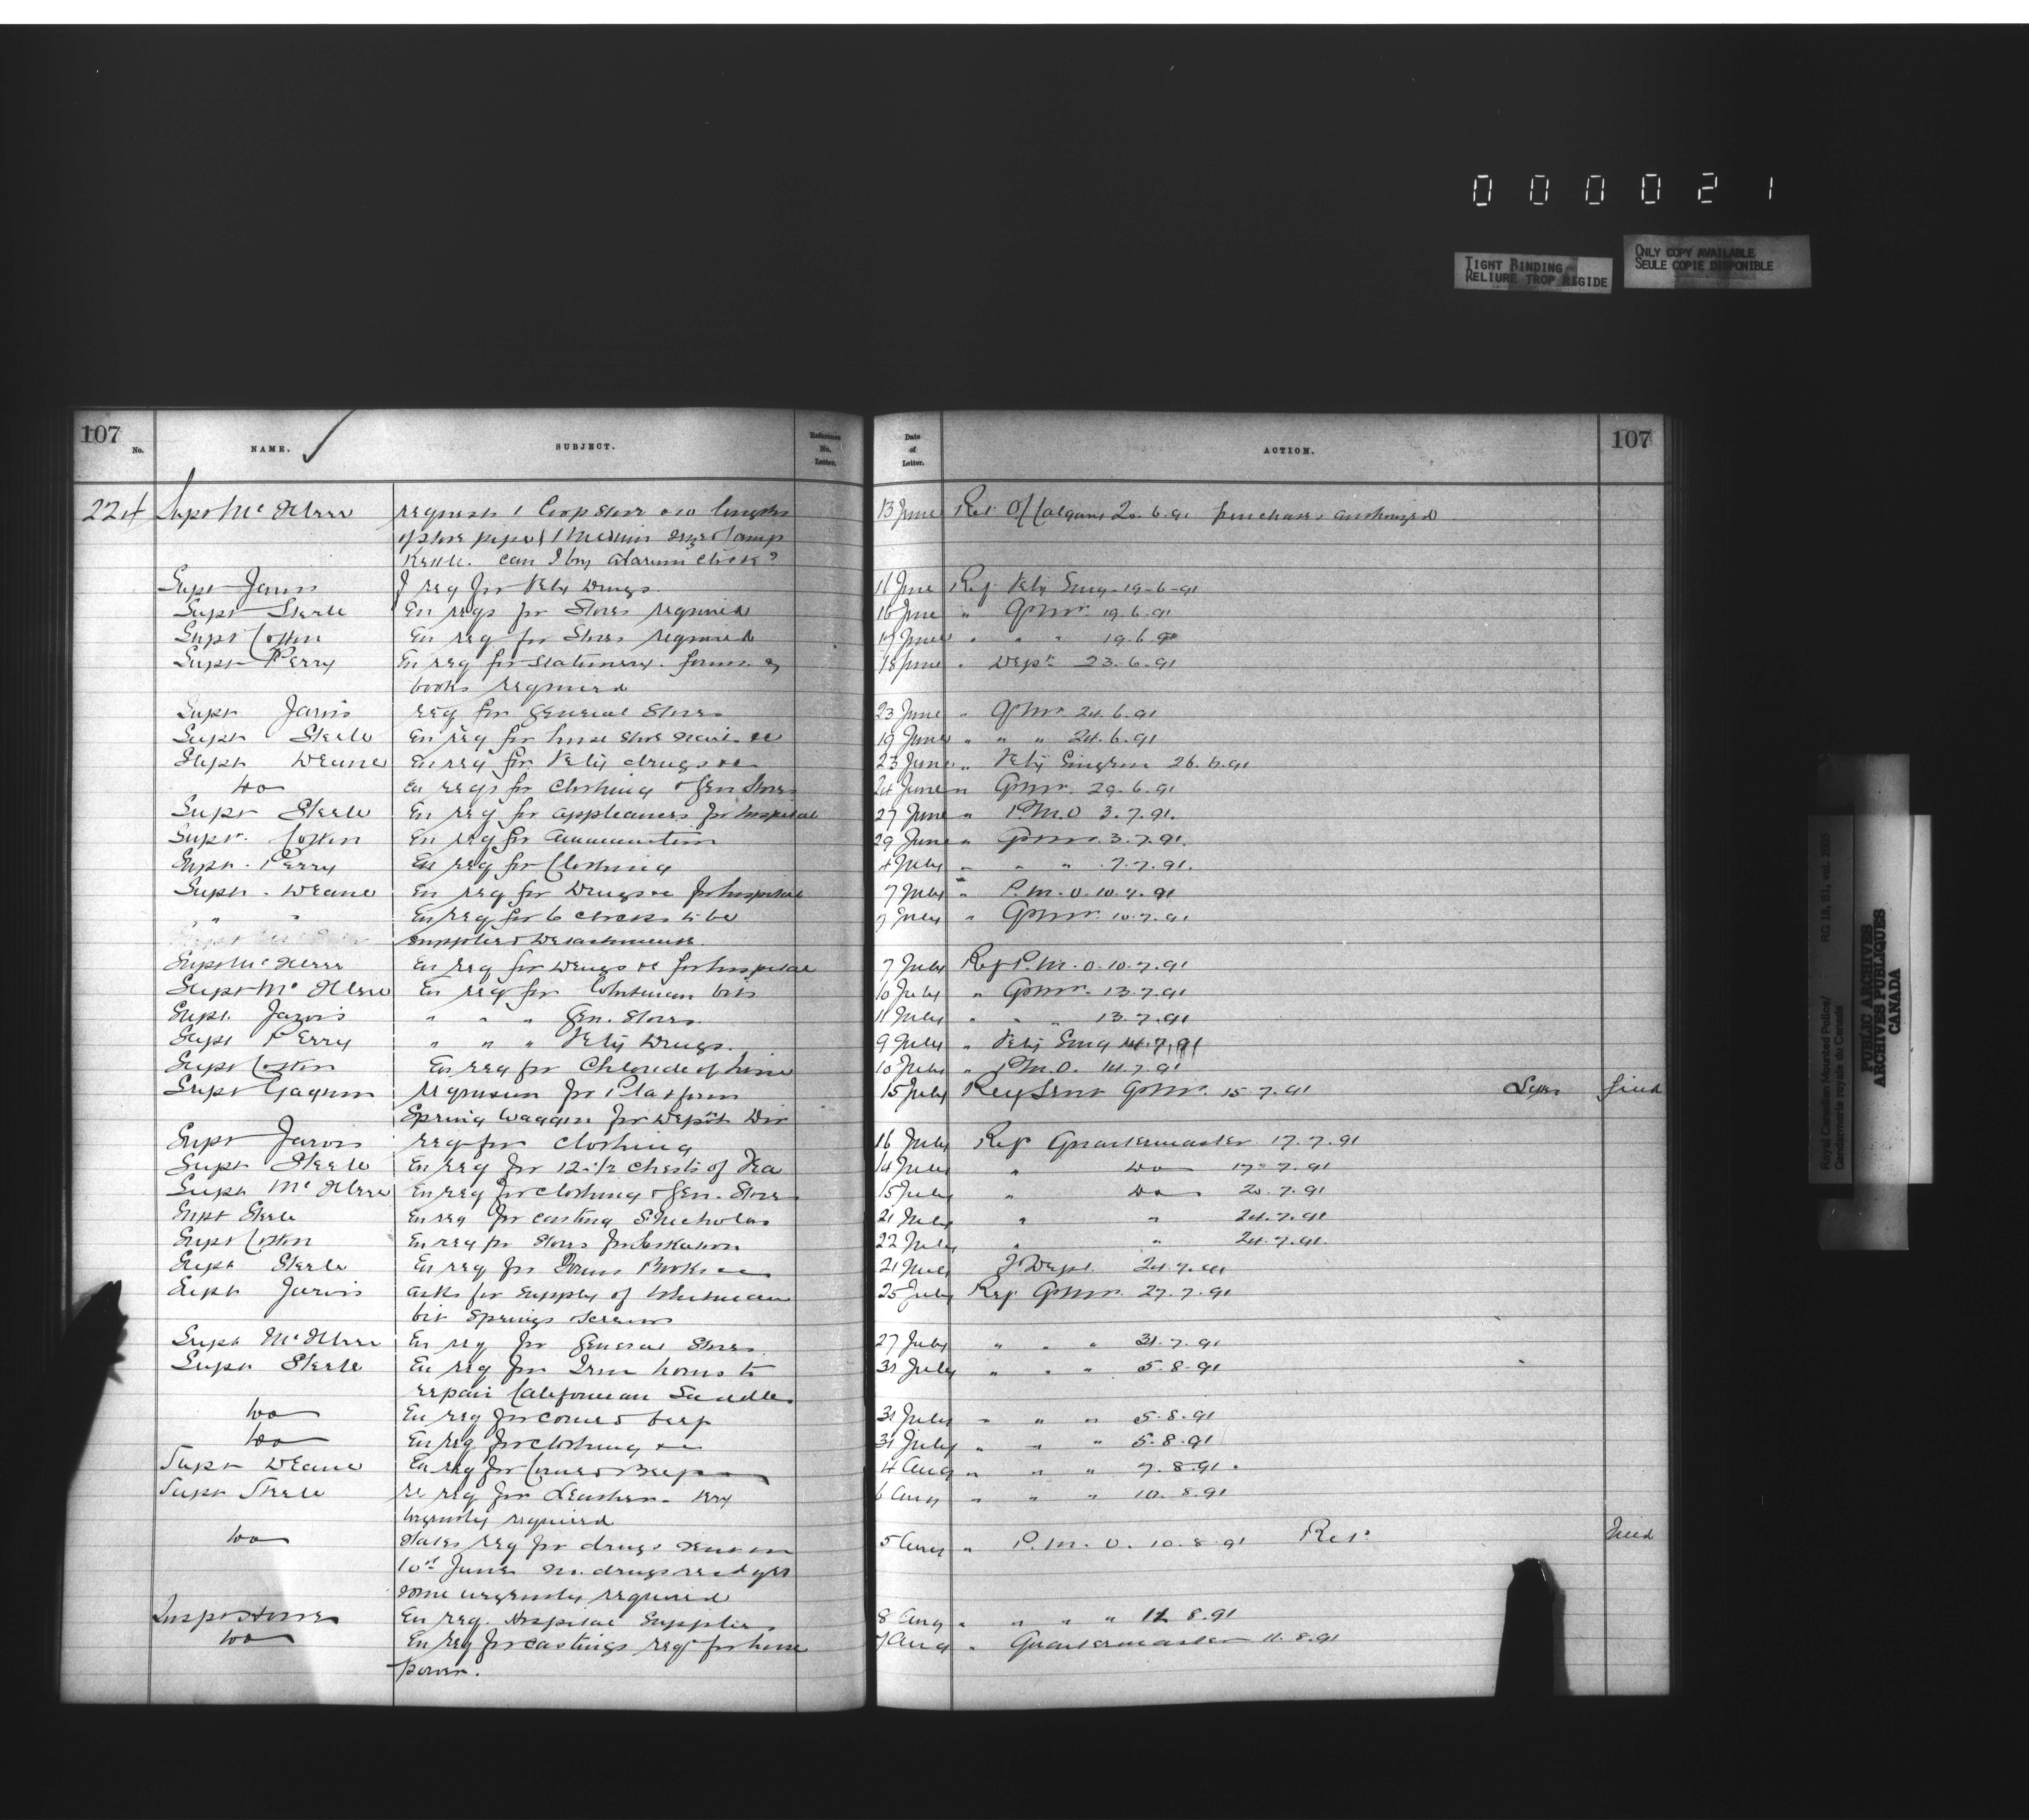 0 0 0 0 2 1
TIGHT BINDING
RELIURE TROP RIGIDE
ONLY COPY AVAILABLE
SEULE COPIE DISPONIBLE
107
No.
NAME.
SUBJECT.
Reference No. Letter.
Date of Letter.
ACTION.
107
224 Supt McIllree requests 1 Coop stove & 10 lengths 13 June Ref Of Calgary 20.6.91 purchase authorized
of stove pipes & 1 Medium
Kettle. can I buy alarum clock?
Supt Jarvis req for Vety Drugs 16 June Ref Vety Surg 19-6-91
Supt Steele En reqs for Stores required 16 June " QrMr. 19.6.91
Supt Cotton En req for Stores required 17 June " " " 19.6.91
Supt Perry En req for stationery. forms & 18 June " Dept 23.6.91
books required
Supt Jarvis req for General Stores 23 June " QrMr 24.6.91
Supt Steele En req for horse shoe nails &c 19 June " " " 24.6.91
Supt Deane En req for Vety drugs &c 23 June " Vety Surgeon 26.6.91
Do En reqs for Clothing & Gen Stores 24 June " QrMr. 29.6.91
Supt Steele En req for appliances for hospital 27 June " P.M.O 3.7.91.
Supt. Cotton En req for ammunition 29 June " QrMr. 3.7.91.
Supt. Perry En req for Clothing 4 July " " " 7.7.91.
Supt. Deane En req for Drugs &c for hospital 7 July " P.M.O. 10.7.91
" " En req for 6 clocks to be 9 July " QrMr. 10.7.91
supplied Detachments.
Supt McIllree En req for Drugs &c for hospital 7 July Ref P.M.O. 10.7.91
Supt McIllree En req for Whitman bits 10 July " QrMr. 13.7.91
Supt. Jarvis " " " Gen. Stores. 11 July " " 13.7.91
Supt Perry " " " Vety Drugs. 9 July " Vety Surg 14.7.91
Supt Cotton En req for Chloride of Lime 10 July " P.M.O. 14.7.91
Supt Gagnon requision for Platform 15 July Req Sent QrMr. 15.7.91
Spring Waggon for Depôt Div
Supt Jarvis req for Clothing 16 July Ref Quartermaster 17.7.91
Supt Steele En req for 12 1/2 Chests of Tea 14 July " Do 17.7.91
Supt McIllree En req for clothing & Gen. Stores 15 July " Do 20.7.91
Supt Steele En req for casting 21 July " " 24.7.91
Supt Cotton En req for Stores for Saskatoon 22 July " " 24.7.91.
Supt Steele En req for Forms Books &c 21 July Dept. 24.7.91
Supt Jarvis asks for supply of Whitman 25 July Ref QrMr. 27.7.91
bit Springs & screws
Supt McIllree En req for General Stores 27 July " " " 31.7.91
Supt Steele En req for Iron horns to 31 July " " " 5.8.91
repair Californian Saddles
Do En req for corned beef 31 July " " " 5.8.91
Do En req for clothing &c 31 July " " " 5.8.91
Supt Deane En req for Corned Beef 4 Aug " " " 7.8.91.
Supt Steele re req for Leather. Very 6 Aug " " " 10.8.91
Urgently required
Do states req for drugs sent on 5 Aug " P.M.O. 10.8.91
10th June. No drugs recd yet
some urgently required
En req. Hospital Supplies 8 Aug " " " " 8.91
Do En req for castings reqd for horse 7 Aug " Quartermaster 11.8.91
power.
Royal Canadian Mounted Police/
Gendarmerie royale du Canada
RG 18, B1, vol.
PUBLIC ARCHIVES
ARCHIVES PUBLIQUES
CANADA